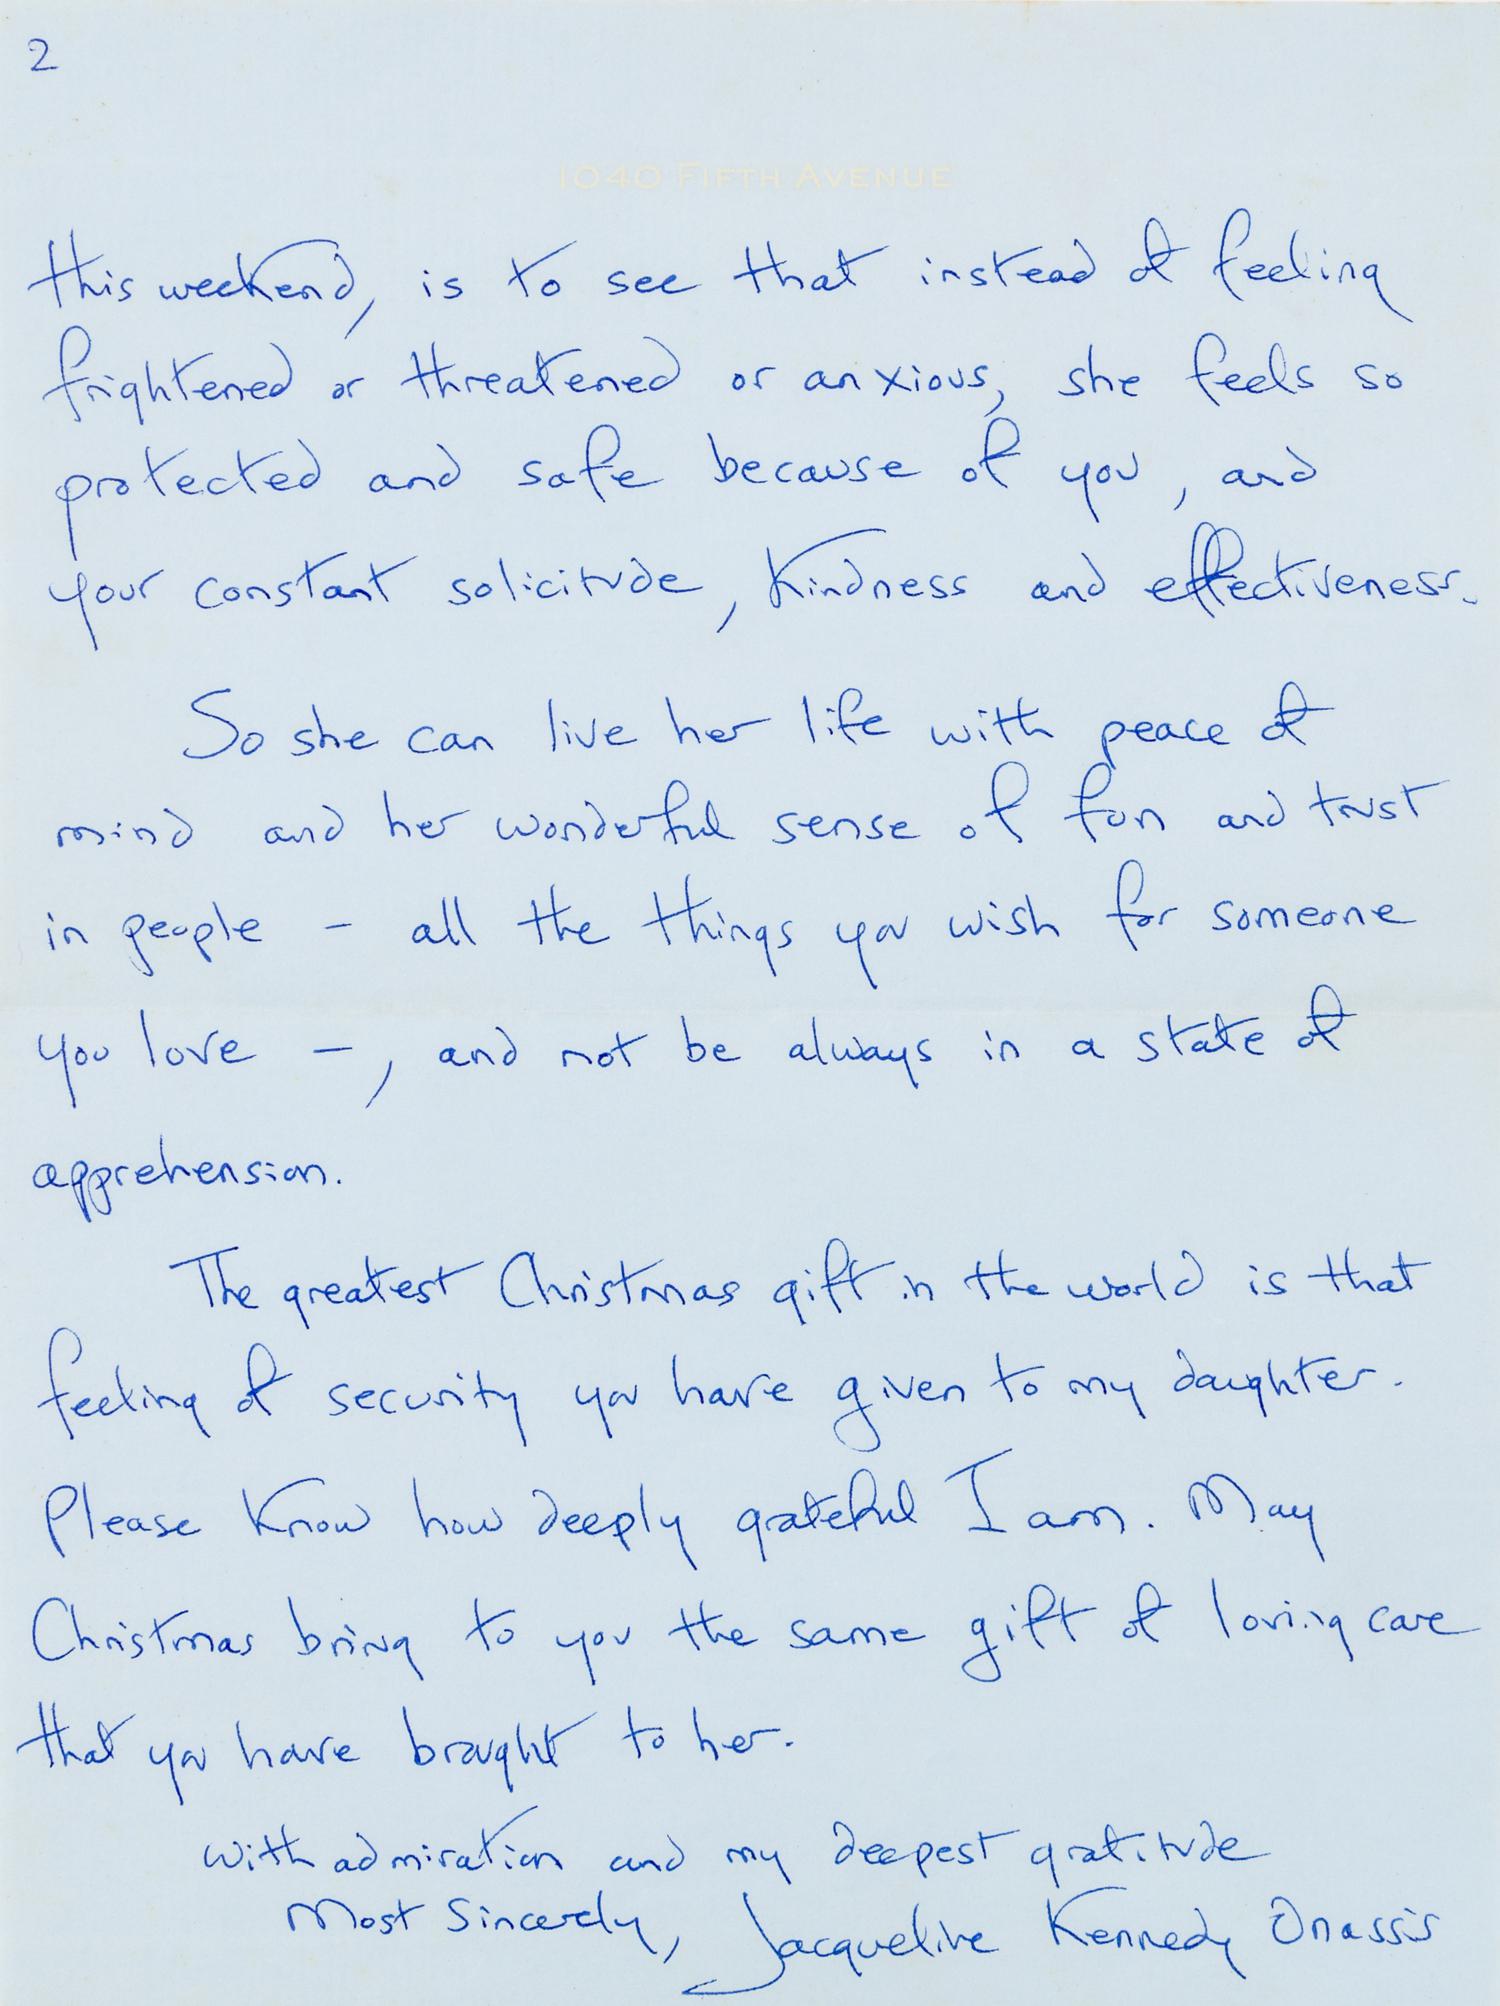 2
1040 FIFTH AVENUE
this weekend, is to see that instead of feeling
frightened or threatened or anxious, she feels so
protected and safe because of you, and
your constant solicitude, kindness and effectiveness.
So she can live her life with peace of
mind and her wonderful sense of fun and trust
in people - all the things you wish for someone
you love -, and not be always in a state of
apprehension.
The greatest Christmas gift in the world is that
feeling of security you have given to my daughter.
Please know how deeply grateful I am. May
Christmas bring to you the same gift of loving care
that you have brought to her.
With admiration and my deepest gratitude
Most Sincerely, Jacqueline Kennedy Onassis